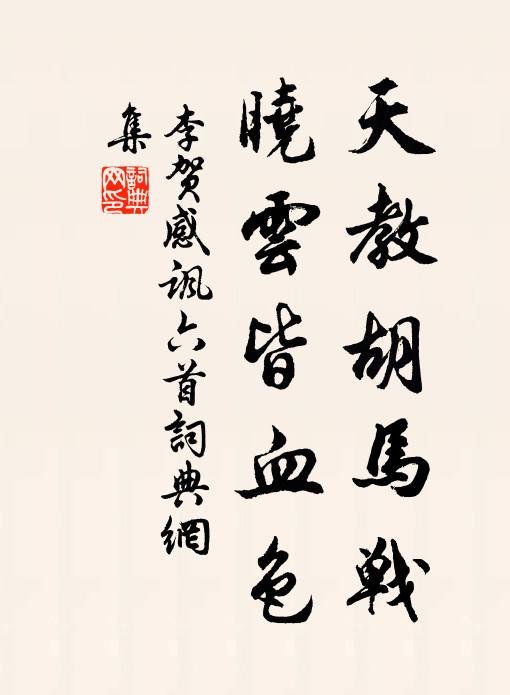 天教胡馬戦
曉雲皆血色
李賀感諷六首詞典網
集
詞典网印